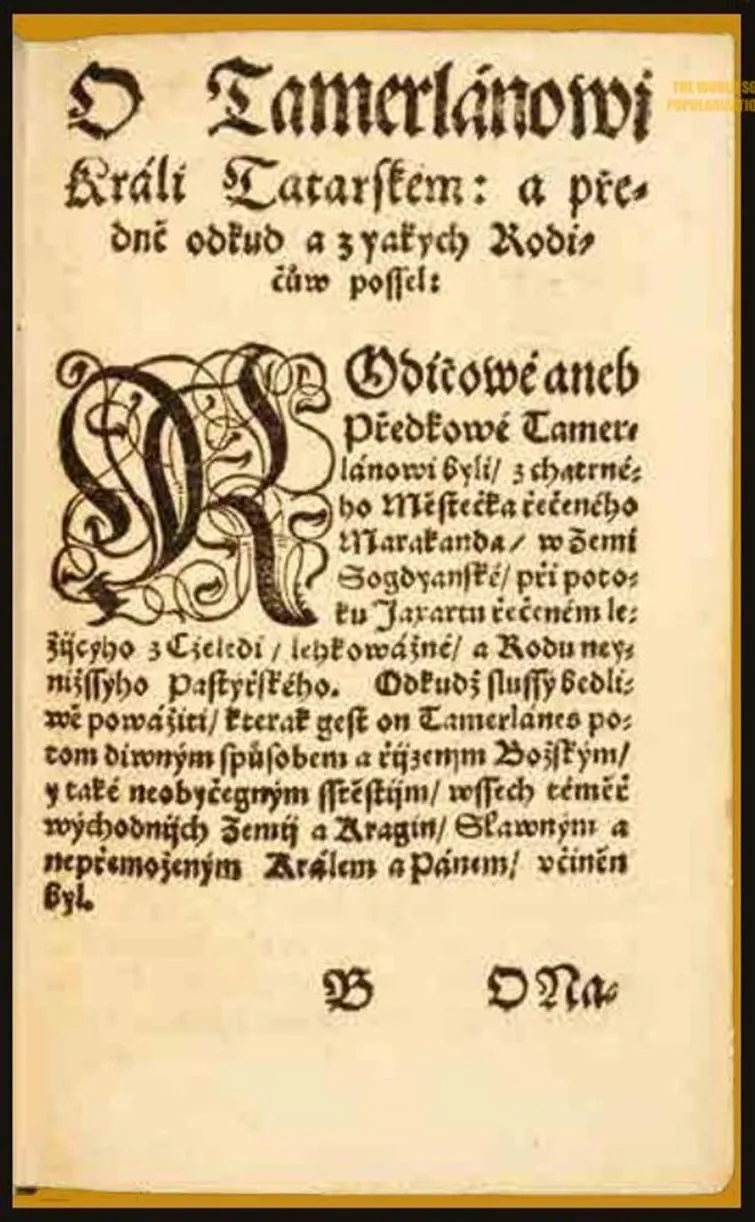 O Tamerlánowi
Králi Tatarſkém: a pře⸗
dně odkud a z yakych Rodi⸗
čůw poſſel:
ROdičowé aneb
Předkowé Tamer⸗
lánowi byli/ z chatrné⸗
ho Městečka řečeného
Marakanda/ w Zemi
Sogdyanſké/ při poto⸗
ku Jaxartu řečeném le⸗
žijcyho z Cželedi / lehkowážné/ a Rodu ney⸗
nižſſyho Paſtyřſkého. Odkudž ſluſſy bedli⸗
wě powážiti/ kterak geſt on Tamerlánes po⸗
tom diwným ſpůſobem a řijzenjm Božſkým/
y také neobyčegným ſſtěſtijm/ wſſech téměř
wýchodnijch Zemij a Kragin/ Slawným a
nepřemoženým Králem a Pánem/ včiněn
byl.
B ONa⸗
THE WORLD SC
POPULARISATIO